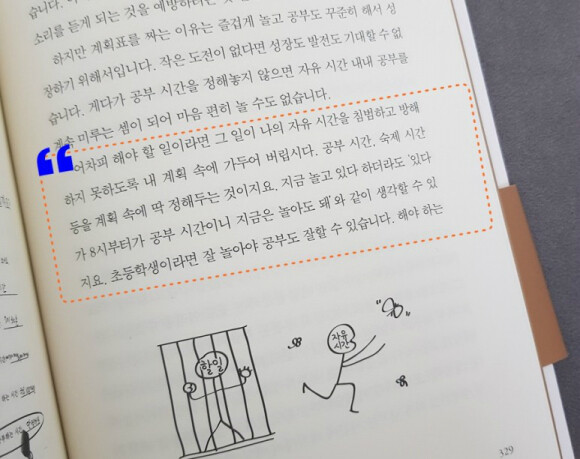 소리를 듣게 되는 것을 예방하려는
하지만 계획표를 짜는 이유는 즐겁게 놀고 공부도 꾸준히 해서 성
장하기 위해서입니다. 작은 도전이 없다면 성장도 발전도 기대할 수 없
습니다. 게다가 공부 시간을 정해놓지 않으면 자유 시간 내내 공부를
계속 미루는 셈이 되어 마음 편히 놀 수도 없습니다.
어차피 해야 할 일이라면 그 일이 나의 자유 시간을 침범하고 방해
하지 못하도록 내 계획 속에 가두어 버립시다. 공부 시간, 숙제 시간
등을 계획 속에 딱 정해두는 것이지요. 지금 놀고 있다 하더라도 '있다
가 8시부터가 공부 시간이니 지금은 놀아도 돼'와 같이 생각할 수 있
지요. 초등학생이라면 잘 놀아야 공부도 잘할 수 있습니다. 해야 하는
할일
자유
시간
329